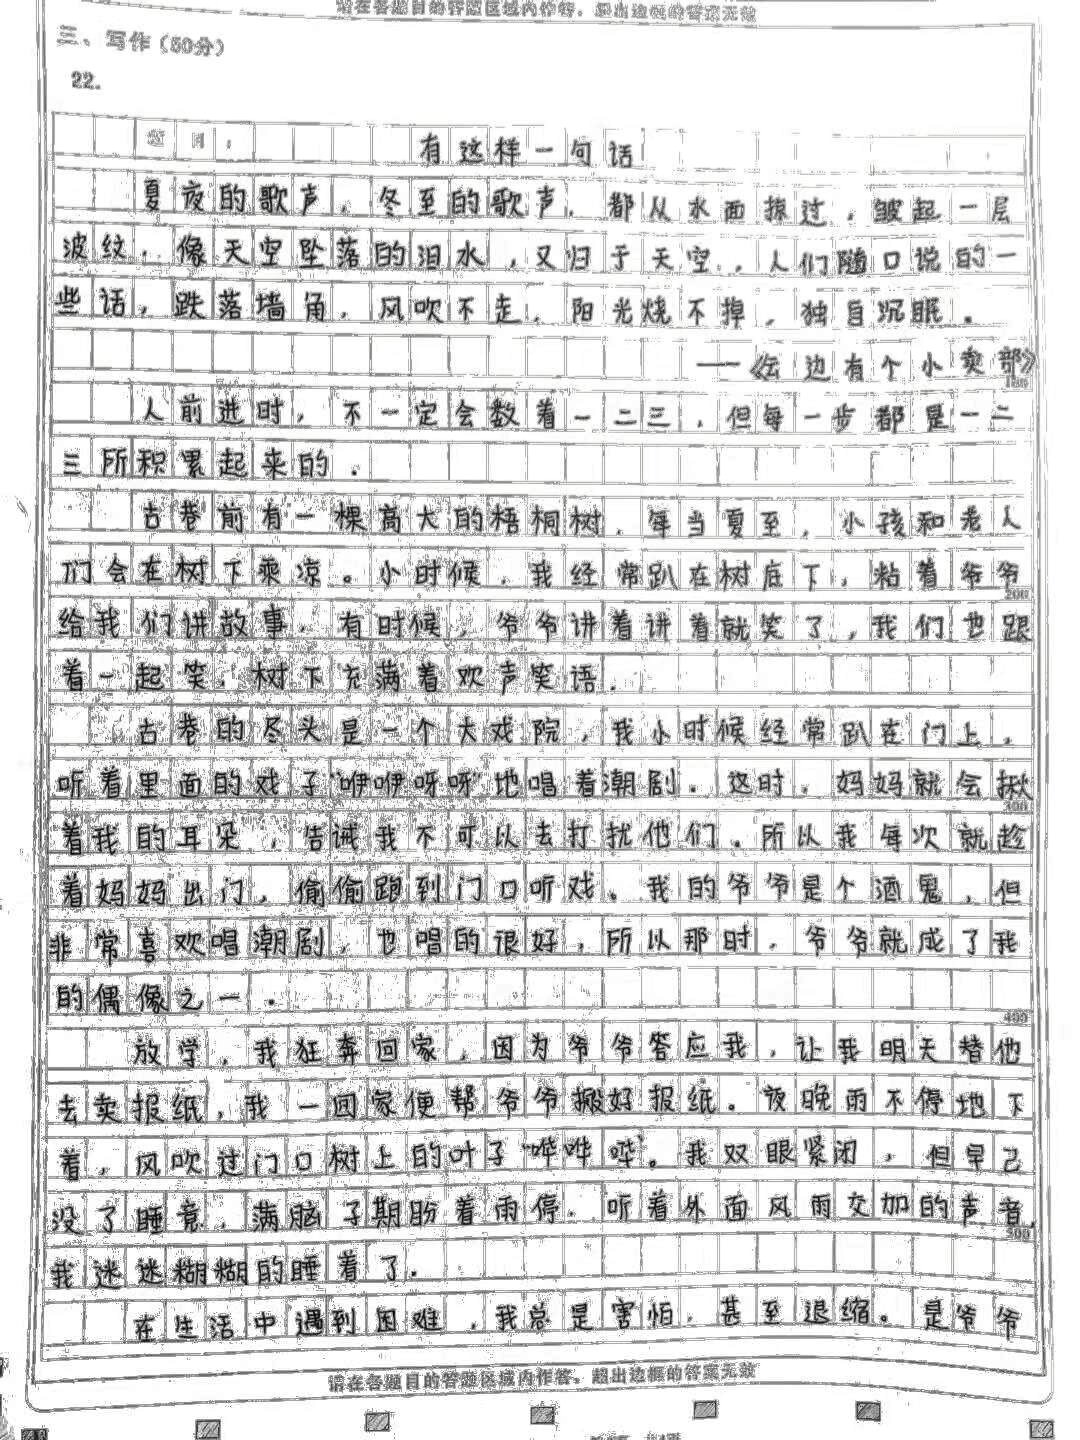 请在各题目的答题区域内作答，超出边框的答案无效
三、写作（50分）
22.
题目：
有这样一句话
夏夜的歌声，冬至的歌声，都从水面掠过，皱起一层
波纹，像天空坠落的泪水，又归于天空，人们随口说的一
些话，跌落墙角，风吹不走，阳光烧不掉，独自沉眠。
——《云边有个小卖部》
100
人前进时，不一定会数着一二三，但每一步都是一二
三所积累起来的。
古巷前有一棵高大的梧桐树，每当夏至，小孩和老人
们会在树下乘凉。小时候，我经常趴在树底下，粘着爷爷
200
给我们讲故事，有时候，爷爷讲着讲着就笑了，我们也跟
着一起笑，树下充满着欢声笑语。
古巷的尽头是一个大戏院，我小时候经常趴在门上，
听着里面的戏子“咿咿呀呀”地唱着潮剧。这时，妈妈就会揪
300
着我的耳朵，告诫我不可以去打扰他们。所以我每次就趁
着妈妈出门，偷偷跑到门口听戏。我的爷爷是个酒鬼，但
非常喜欢唱潮剧，也唱的很好，所以那时，爷爷就成了我
的偶像之一。
400
放学，我狂奔回家，因为爷爷答应我，让我明天替他
去卖报纸，我一回家便帮爷爷搬好报纸。夜晚雨不停地下
着，风吹过门口树上的叶子“哗哗哗”。我双眼紧闭，但早已
没了睡意，满脑子期盼着雨停，听着外面风雨交加的声音，
500
我迷迷糊糊的睡着了。
在生活中遇到困难，我总是害怕，甚至退缩。是爷爷
请在各题目的答题区域内作答，超出边框的答案无效